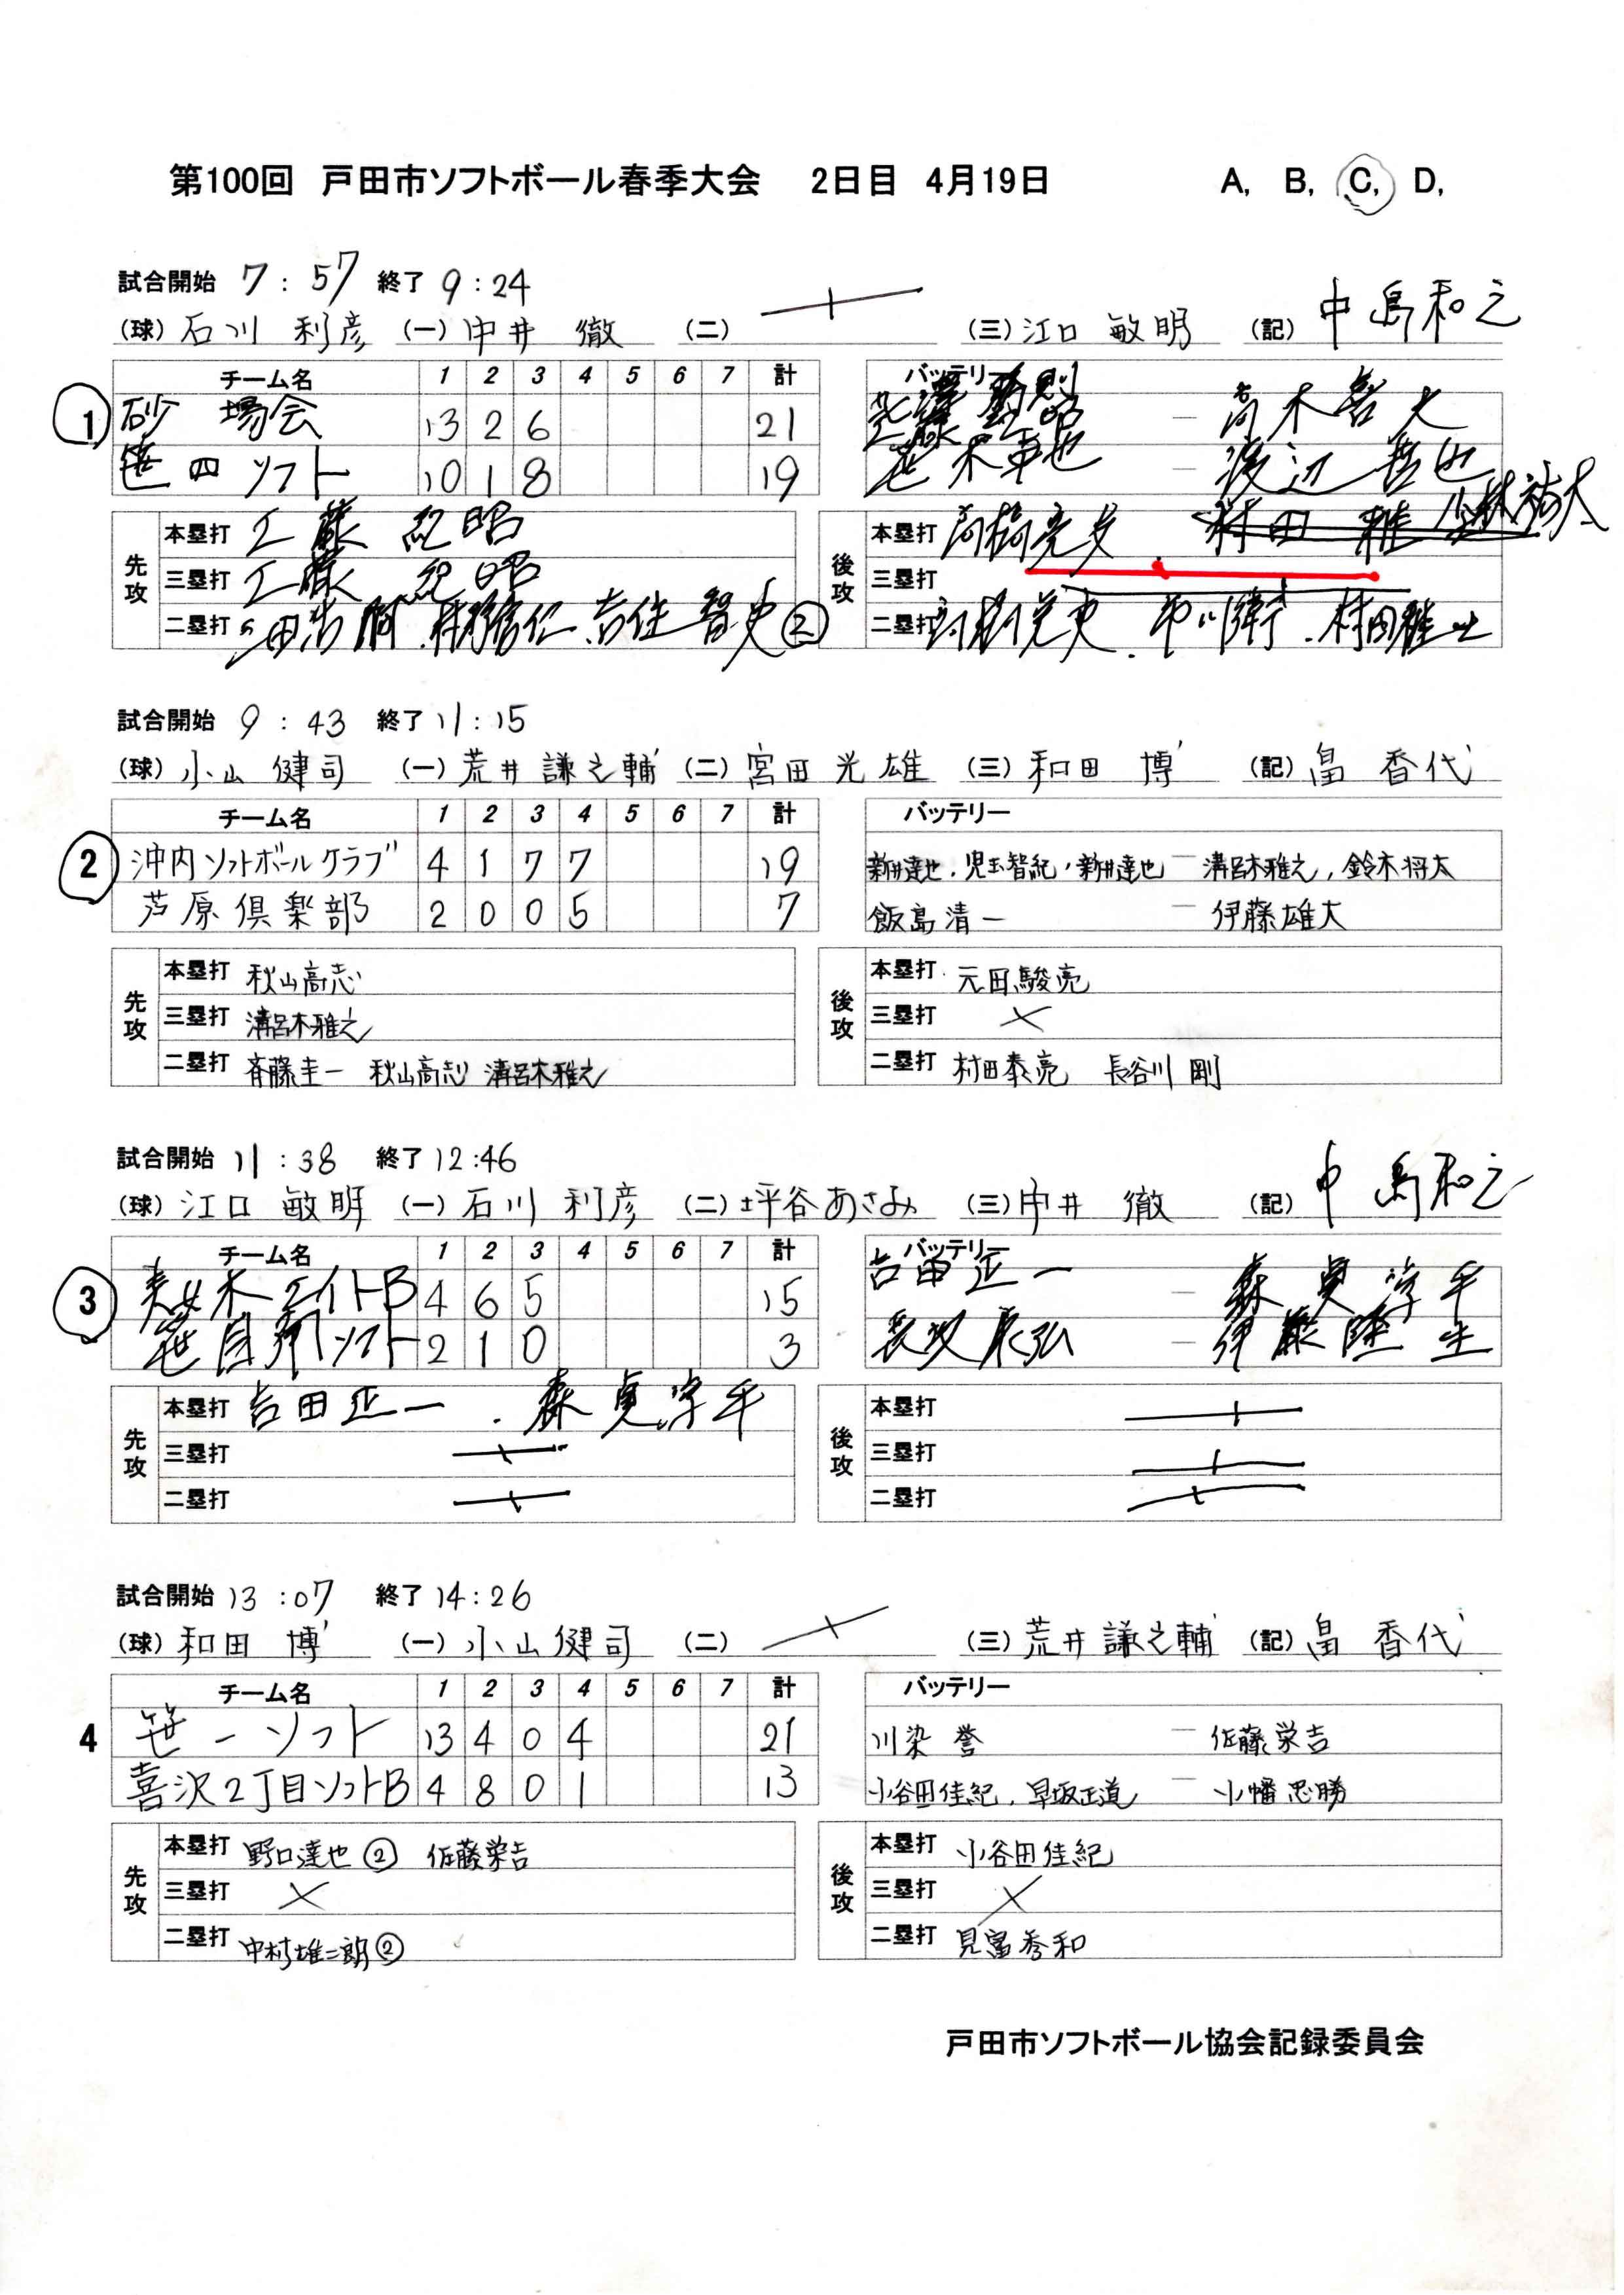 第100回 戸田市ソフトボール春季大会 2日目 4月19日 A, B, C, D,
試合開始 7:57 終了 9:24
(球) 石川 利彦 (一) 中井 徹 (二) (三) 江口 敏明 (記) 中島和之
チーム名 1 2 3 4 5 6 7 計 バッテリー
1 砂場会 13 2 6 21 — 高木啓大
笹四ソフト 10 1 8 19 笹木卓也 — 渡辺哲也
先攻 後攻
本塁打 工藤紀昭 本塁打 高橋亮史 村田雅 小林祐太
三塁打 工藤紀昭 三塁打
二塁打 吉住智史② 二塁打 高橋亮史.市川衛.村田雅士
試合開始 9:43 終了 11:15
(球) 小山健司 (一) 荒井謙之輔 (二) 宮田光雄 (三) 和田 博 (記) 畠 香代
チーム名 1 2 3 4 5 6 7 計 バッテリー
2 沖内ソフトボールクラブ 4 1 7 7 19 新井達也.児玉智紀,新井達也 — 溝呂木雅之,鈴木将太
芦原倶楽部 2 0 0 5 7 飯島清一 — 伊藤雄大
先攻 後攻
本塁打 秋山高志 本塁打 元田駿亮
三塁打 溝呂木雅之 三塁打 ×
二塁打 斉藤圭一 秋山高志 溝呂木雅之 二塁打 村田泰亮 長谷川剛
試合開始 11:38 終了 12:46
(球) 江口 敏明 (一) 石川 利彦 (二) 坪谷あさみ (三) 中井 徹 (記) 中島和之
チーム名 1 2 3 4 5 6 7 計 バッテリー
3 美女木エイトB 4 6 5 15 吉田正一 — 森貞淳平
笹目南町ソフト 2 1 0 3 — 伊藤陸生
先攻 後攻
本塁打 吉田正一.森貞淳平 本塁打
三塁打 三塁打
二塁打 二塁打
試合開始 13:07 終了 14:26
(球) 和田 博 (一) 小山健司 (二) (三) 荒井謙之輔 (記) 畠 香代
チーム名 1 2 3 4 5 6 7 計 バッテリー
4 笹一ソフト 13 4 0 4 21 川染 誉 — 佐藤栄吉
喜沢2丁目ソフトB 4 8 0 1 13 小谷田佳紀,早坂正道 — 小幡忠勝
先攻 後攻
本塁打 野口達也② 佐藤栄吉 本塁打 小谷田佳紀
三塁打 × 三塁打 ×
二塁打 中村雄二朗② 二塁打 見富秀和
戸田市ソフトボール協会記録委員会